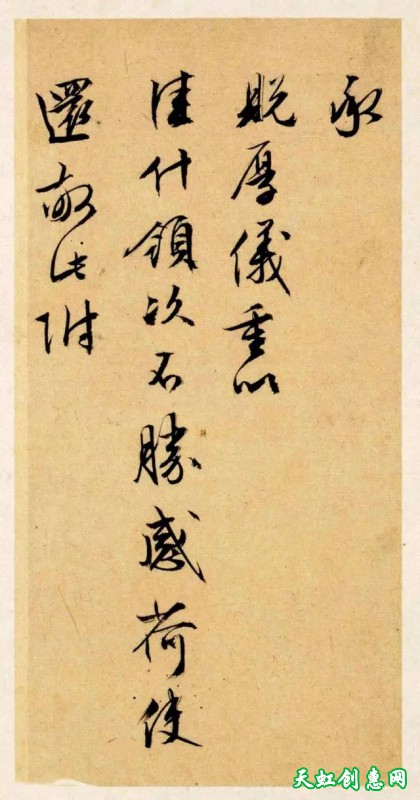 承
貺厚儀重以
佳什領次不勝感荷使
還敬此附
天虹创惠网